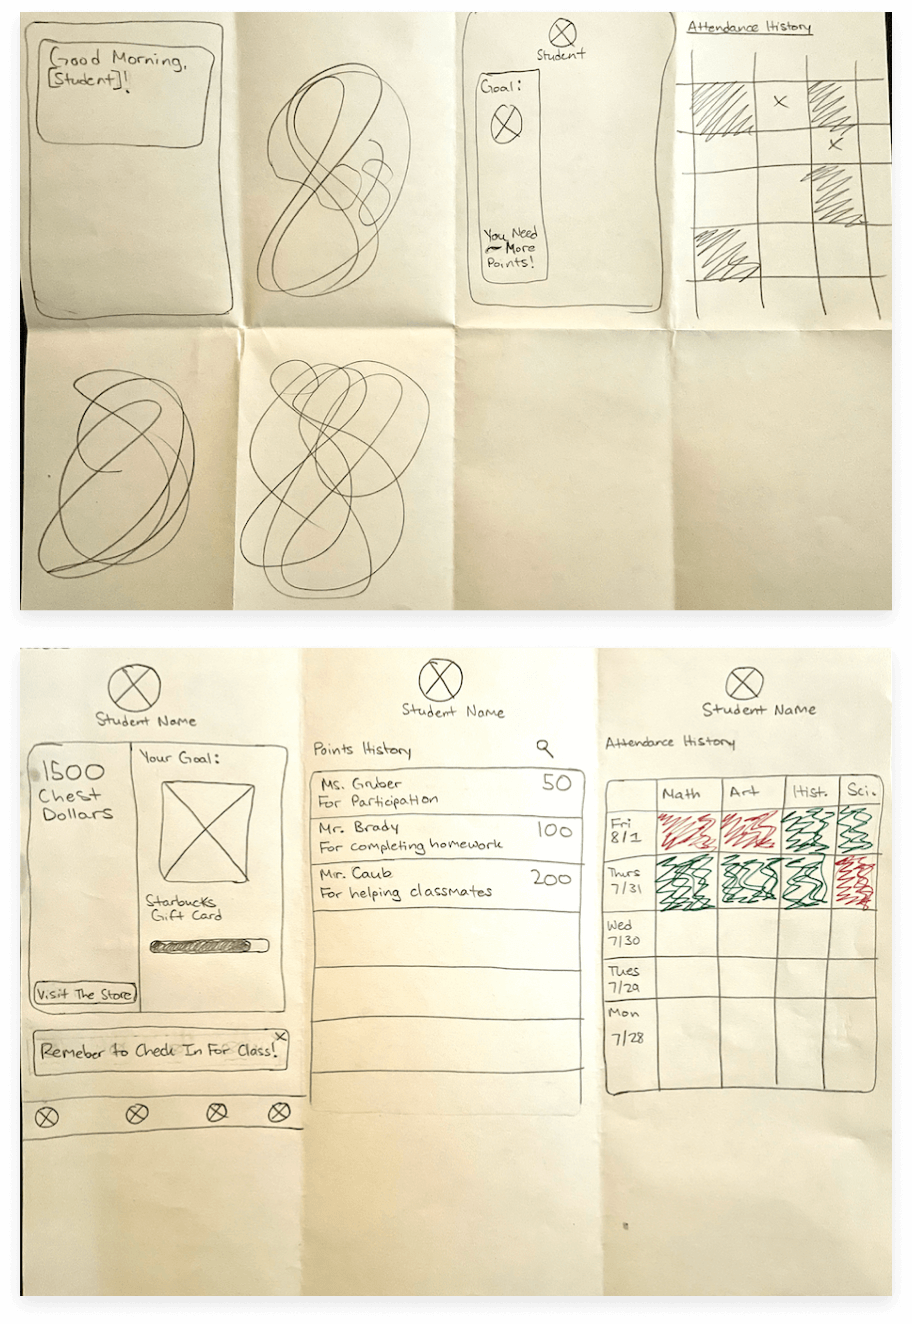 Good Morning,
[Student]!
Student
Goal:
You Need
More
Points!
Attendance History
X
X
Student Name
1500
Chest
Dollars
Visit The Store
Your Goal:
Starbucks
Gift Card
Remeber to Check In For Class!
X
Student Name
Points History
Ms. Gruber 50
For Participation
Mr. Brady 100
For completing homework
Mr. Caub 200
For helping classmates
Student Name
Attendance History
Math Art Hist. Sci.
Fri
8/1
Thurs
7/31
Wed
7/30
Tues
7/29
Mon
7/28